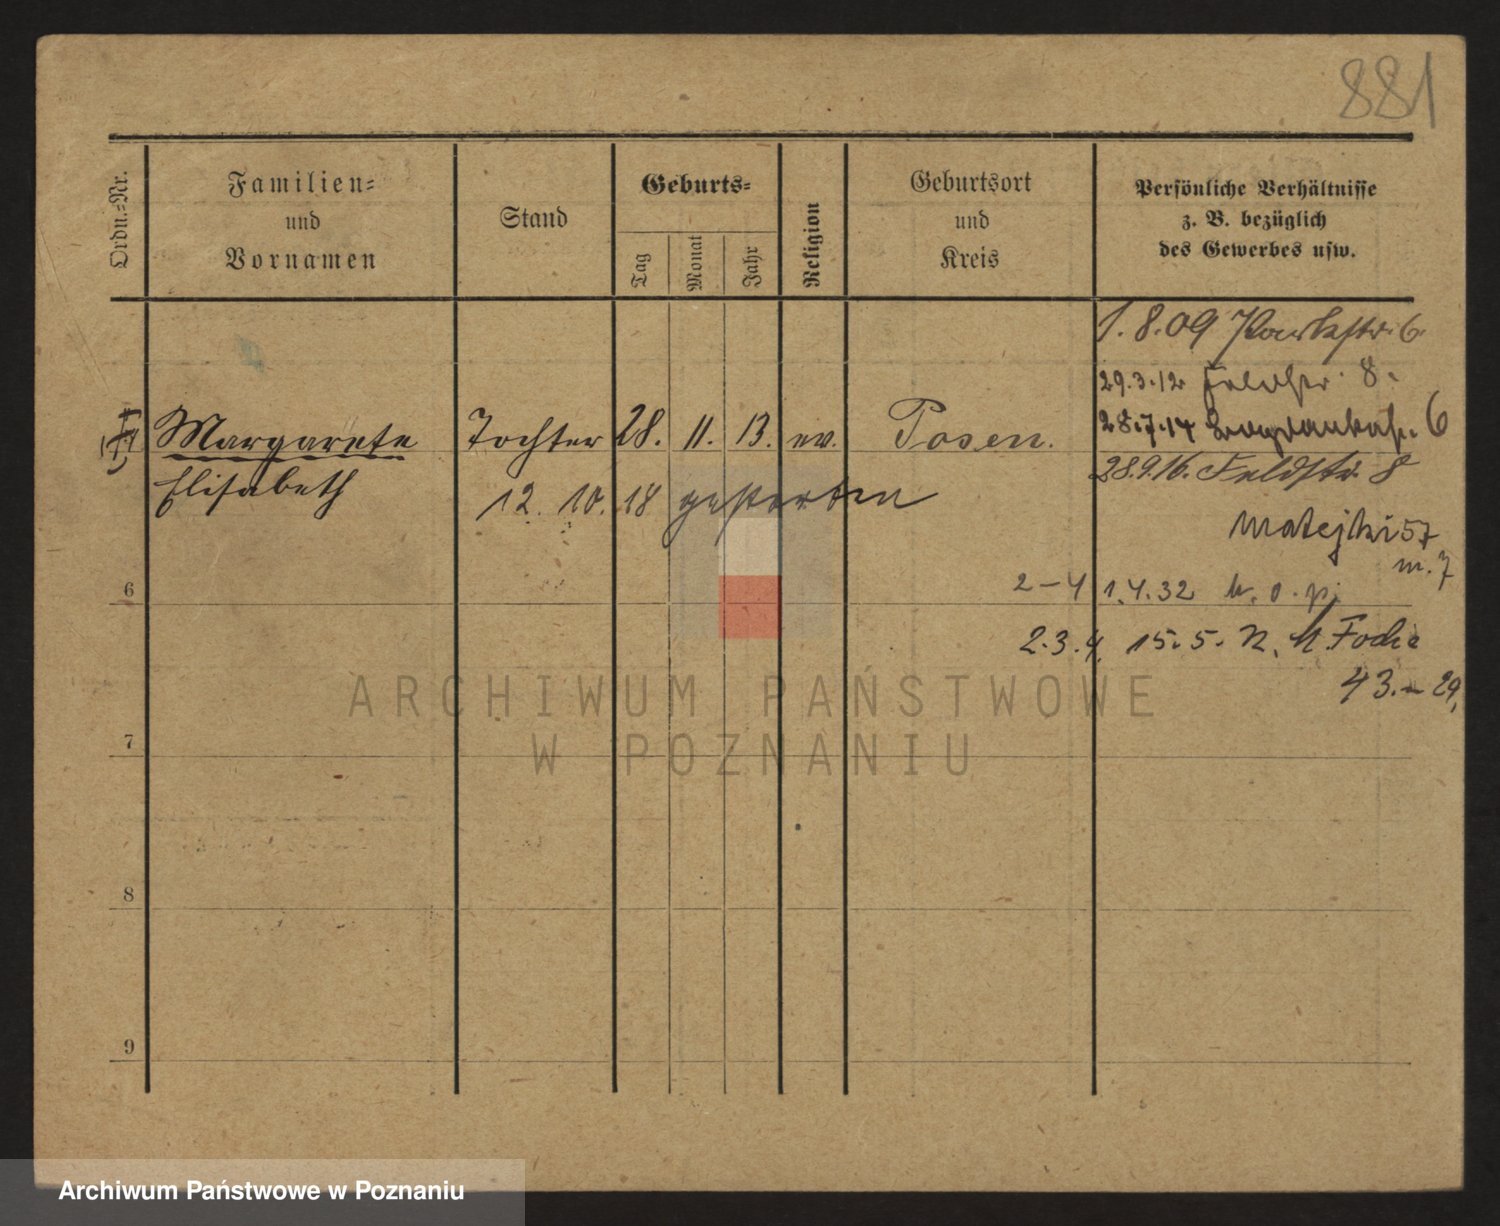 881
Ordn.-Nr.
Familien-
und
Vornamen
Stand
Geburts-
Tag
Monat
Jahr
Religion
Geburtsort
und
Kreis
Persönliche Verhältnisse
z. B. bezüglich
des Gewerbes usw.
1.8.09 Parkstr. 6.
29.3.12 Feldstr. 8.
Margarete Tochter 28. 11. 13. ev. Posen. 28.7.14 6
Elisabeth 28.9.16. Feldstr. 8
12. 10. 18 gestorben
Matejki 57
m. 7
6
2–4 1.4.32 k. o. p.
2.3.4. 15.5. M. Focha
43. – 29,
ARCHIWUM PAŃSTWOWE
W POZNANIU
7
8
9
Archiwum Państwowe w Poznaniu